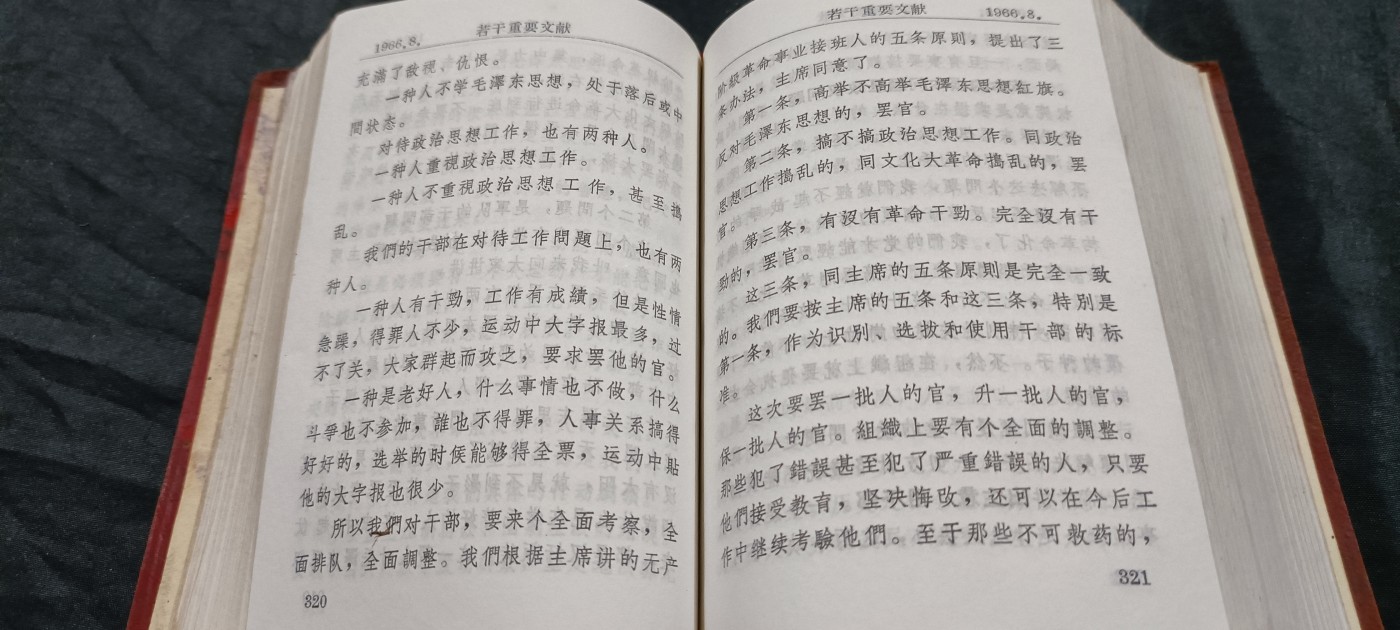 1966.8.
若干重要文献
充滿了敌視、仇恨。
一种人不学毛澤东思想，处于落后或中
間状态。
对待政治思想工作，也有两种人。
一种人重視政治思想工作。
一种人不重視政治思想工作，甚至搗
乱。
我們的干部在对待工作問題上，也有两
种人。
一种人有干勁，工作有成績，但是性情
急躁，得罪人不少，运动中大字报最多，过
不了关，大家群起而攻之，要求罢他的官。
一种是老好人，什么事情也不做，什么
斗爭也不参加，誰也不得罪，人事关系搞得
好好的，选举的时侯能够得全票，运动中貼
他的大字报也很少。
所以我們对干部，要来个全面考察，全
面排队，全面調整。我們根据主席讲的无产
320
若干重要文献
1966.8.
阶級革命事业接班人的五条原則，提出了三
条办法，主席同意了。
第一条，高举不高举毛澤东思想紅旗。
反对毛澤东思想的，罢官。
第二条，搞不搞政治思想工作。同政治
思想工作搗乱的，同文化大革命搗乱的，罢
官。
第三条，有沒有革命干勁。完全沒有干
勁的，罢官。
这三条，同主席的五条原則是完全一致
的。我們要按主席的五条和这三条，特別是
第一条，作为识別、选拔和使用干部的标
准。
这次要罢一批人的官，升一批人的官，
保一批人的官。組織上要有个全面的調整。
那些犯了錯誤甚至犯了严重錯誤的人，只要
他們接受教育，坚决悔改，还可以在今后工
作中继续考驗他們。至于那些不可救药的，
321